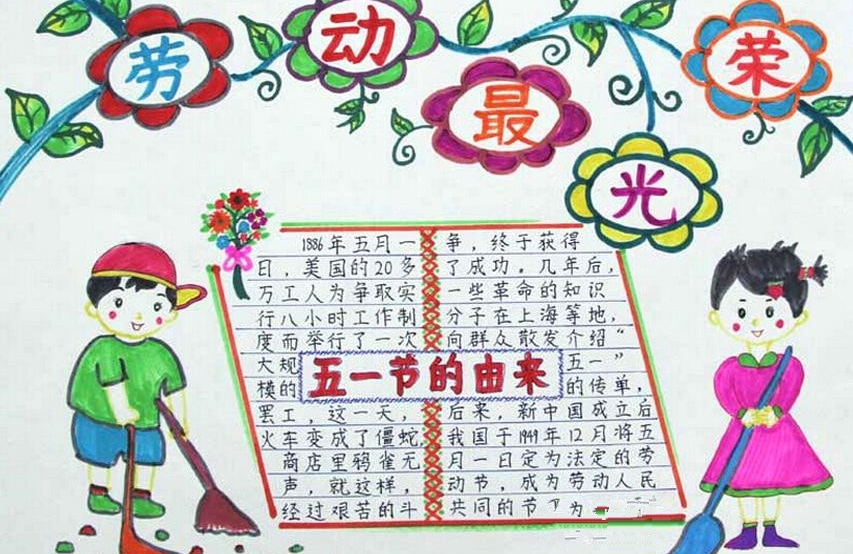 劳动最光荣
1886年五月一
日，美国的20多
万工人为争取实
行八小时工作制
度而举行了一次
大规
模的
罢工，这一天，
火车变成了僵蛇，
商店里鸦雀无
声，就这样，
经过艰苦的斗
五一节的由来
争，终于获得
了成功。几年后，
一些革命的知识
分子在上海等地，
向群众散发介绍“
五一”
的传单，
后来，新中国成立后
我国于1949年12月将五
月一日定为法定的劳
动节，成为劳动人民
共同的节